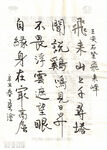 王安石登飛來峰
飛來山上千尋塔
聞說雞鳴見日昇
不畏浮雲遮望眼
自緣身在最高層